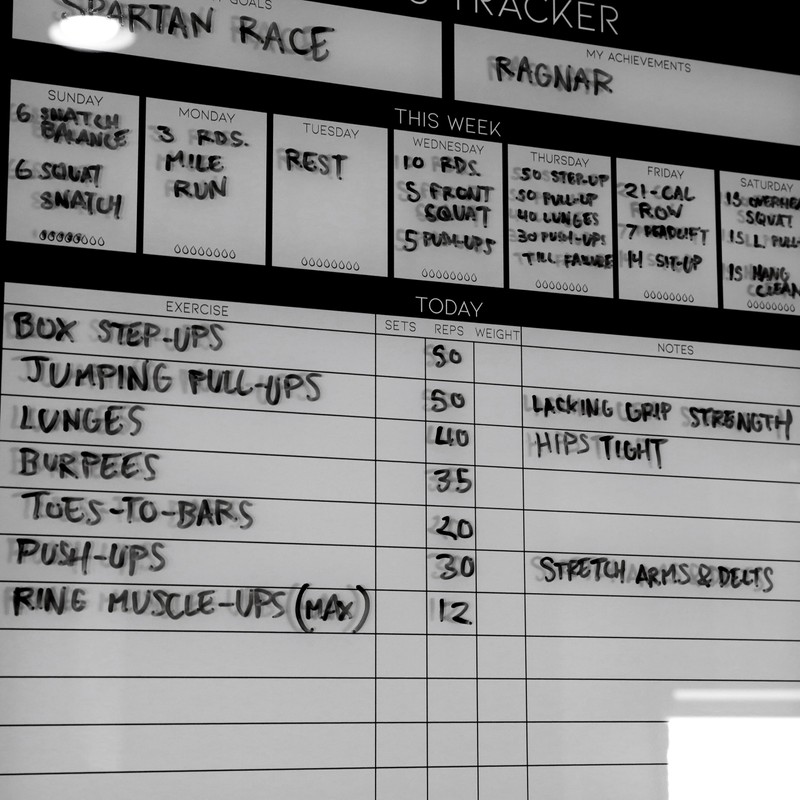 GOALS
TRACKER
SPARTAN RACE
MY ACHIEVEMENTS
RAGNAR
THIS WEEK
SUNDAY
6 SNATCH
BALANCE
6 SQUAT
SNATCH
MONDAY
3 RDS.
MILE
RUN
TUESDAY
REST
WEDNESDAY
10 RDS.
5 FRONT
SQUAT
5 PUSH-UPS
THURSDAY
50 STEP-UP
50 PULL-UP
40 LUNGES
30 PUSH-UPS
TILL FAILURE
FRIDAY
21-CAL
ROW
7 DEADLIFT
14 SIT-UP
SATURDAY
15 OVERHEA
SQUAT
15 L. PULL-
15 HANG
CLEAN
TODAY
EXERCISE SETS REPS WEIGHT NOTES
BOX STEP-UPS 50
JUMPING PULL-UPS 50 LACKING GRIP STRENGTH
LUNGES 40 HIPS TIGHT
BURPEES 35
TOES-TO-BARS 20
PUSH-UPS 30 STRETCH ARMS & DELTS
RING MUSCLE-UPS (MAX) 12